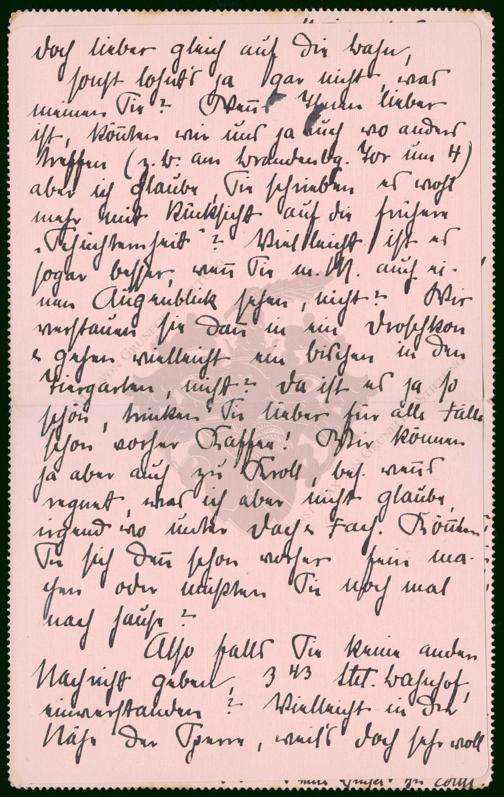 doch lieber gleich auf die Bahn,
sonst lohnt's ja gar nicht, was
meinen Sie? Wenn's Ihnen lieber
ist, könten wir uns ja auch wo anders
treffen (z. B. am Brandenbg. Tor um 4)
aber ich glaube, Sie schrieben es wohl
mehr mit Rücksicht auf die frühere
"Schüchternheit"? Vielleicht ist es
sogar besser, wenn Sie m. M. auch ei-
nen Augenblick sehen, nicht? Wir
verstauen sie dan in ein Droschkon
& gehen vielleicht ein bischen in den
Tiergarten, nicht? Da ist es ja so
schön, trinken Sie lieber für alle Fälle
schon vorher Kaffee! Wir können
ja aber auch zu Kroll, bes. wenn's
regnet, was ich aber nicht glaube,
irgend wo unter Dach & Fach. Könten
Sie sich den schon vorher fein ma-
chen oder müßten Sie noch mal
nach Hause?
Also falls Sie keine andere
Nachricht geben, 3 43 Stet. Bahnhof,
einverstanden? Vielleicht in der
Nähe der Sperre, weil's doch sehr voll